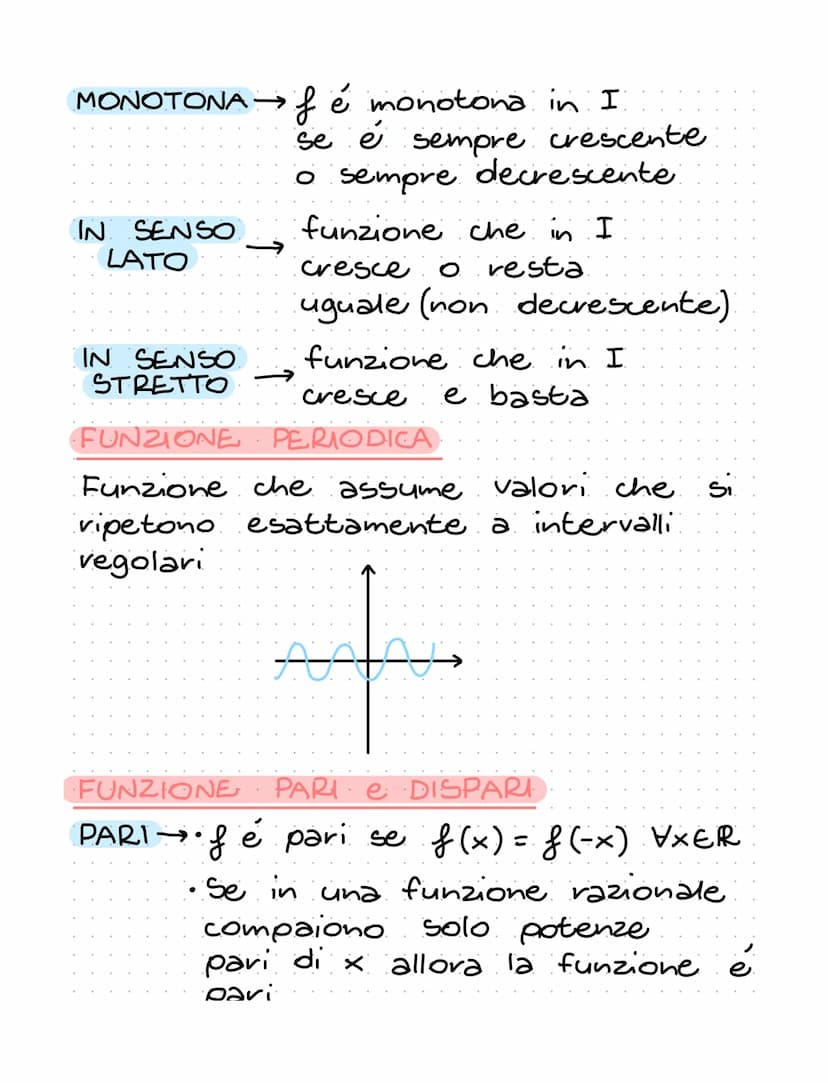 MONOTONA → f é monotona in I
se é sempre crescente
o sempre decrescente
IN SENSO LATO → funzione che in I
cresce o resta
uguale (non decrescente)
IN SENSO STRETTO → funzione che in I
cresce e basta
FUNZIONE PERIODICA
Funzione che assume valori che si
ripetono esattamente a intervalli
regolari
FUNZIONE PARI e DISPARI
PARI → • f é pari se f(x) = f(-x) ∀x∈R
• Se in una funzione razionale
compaiono solo potenze
pari di x allora la funzione é
pari